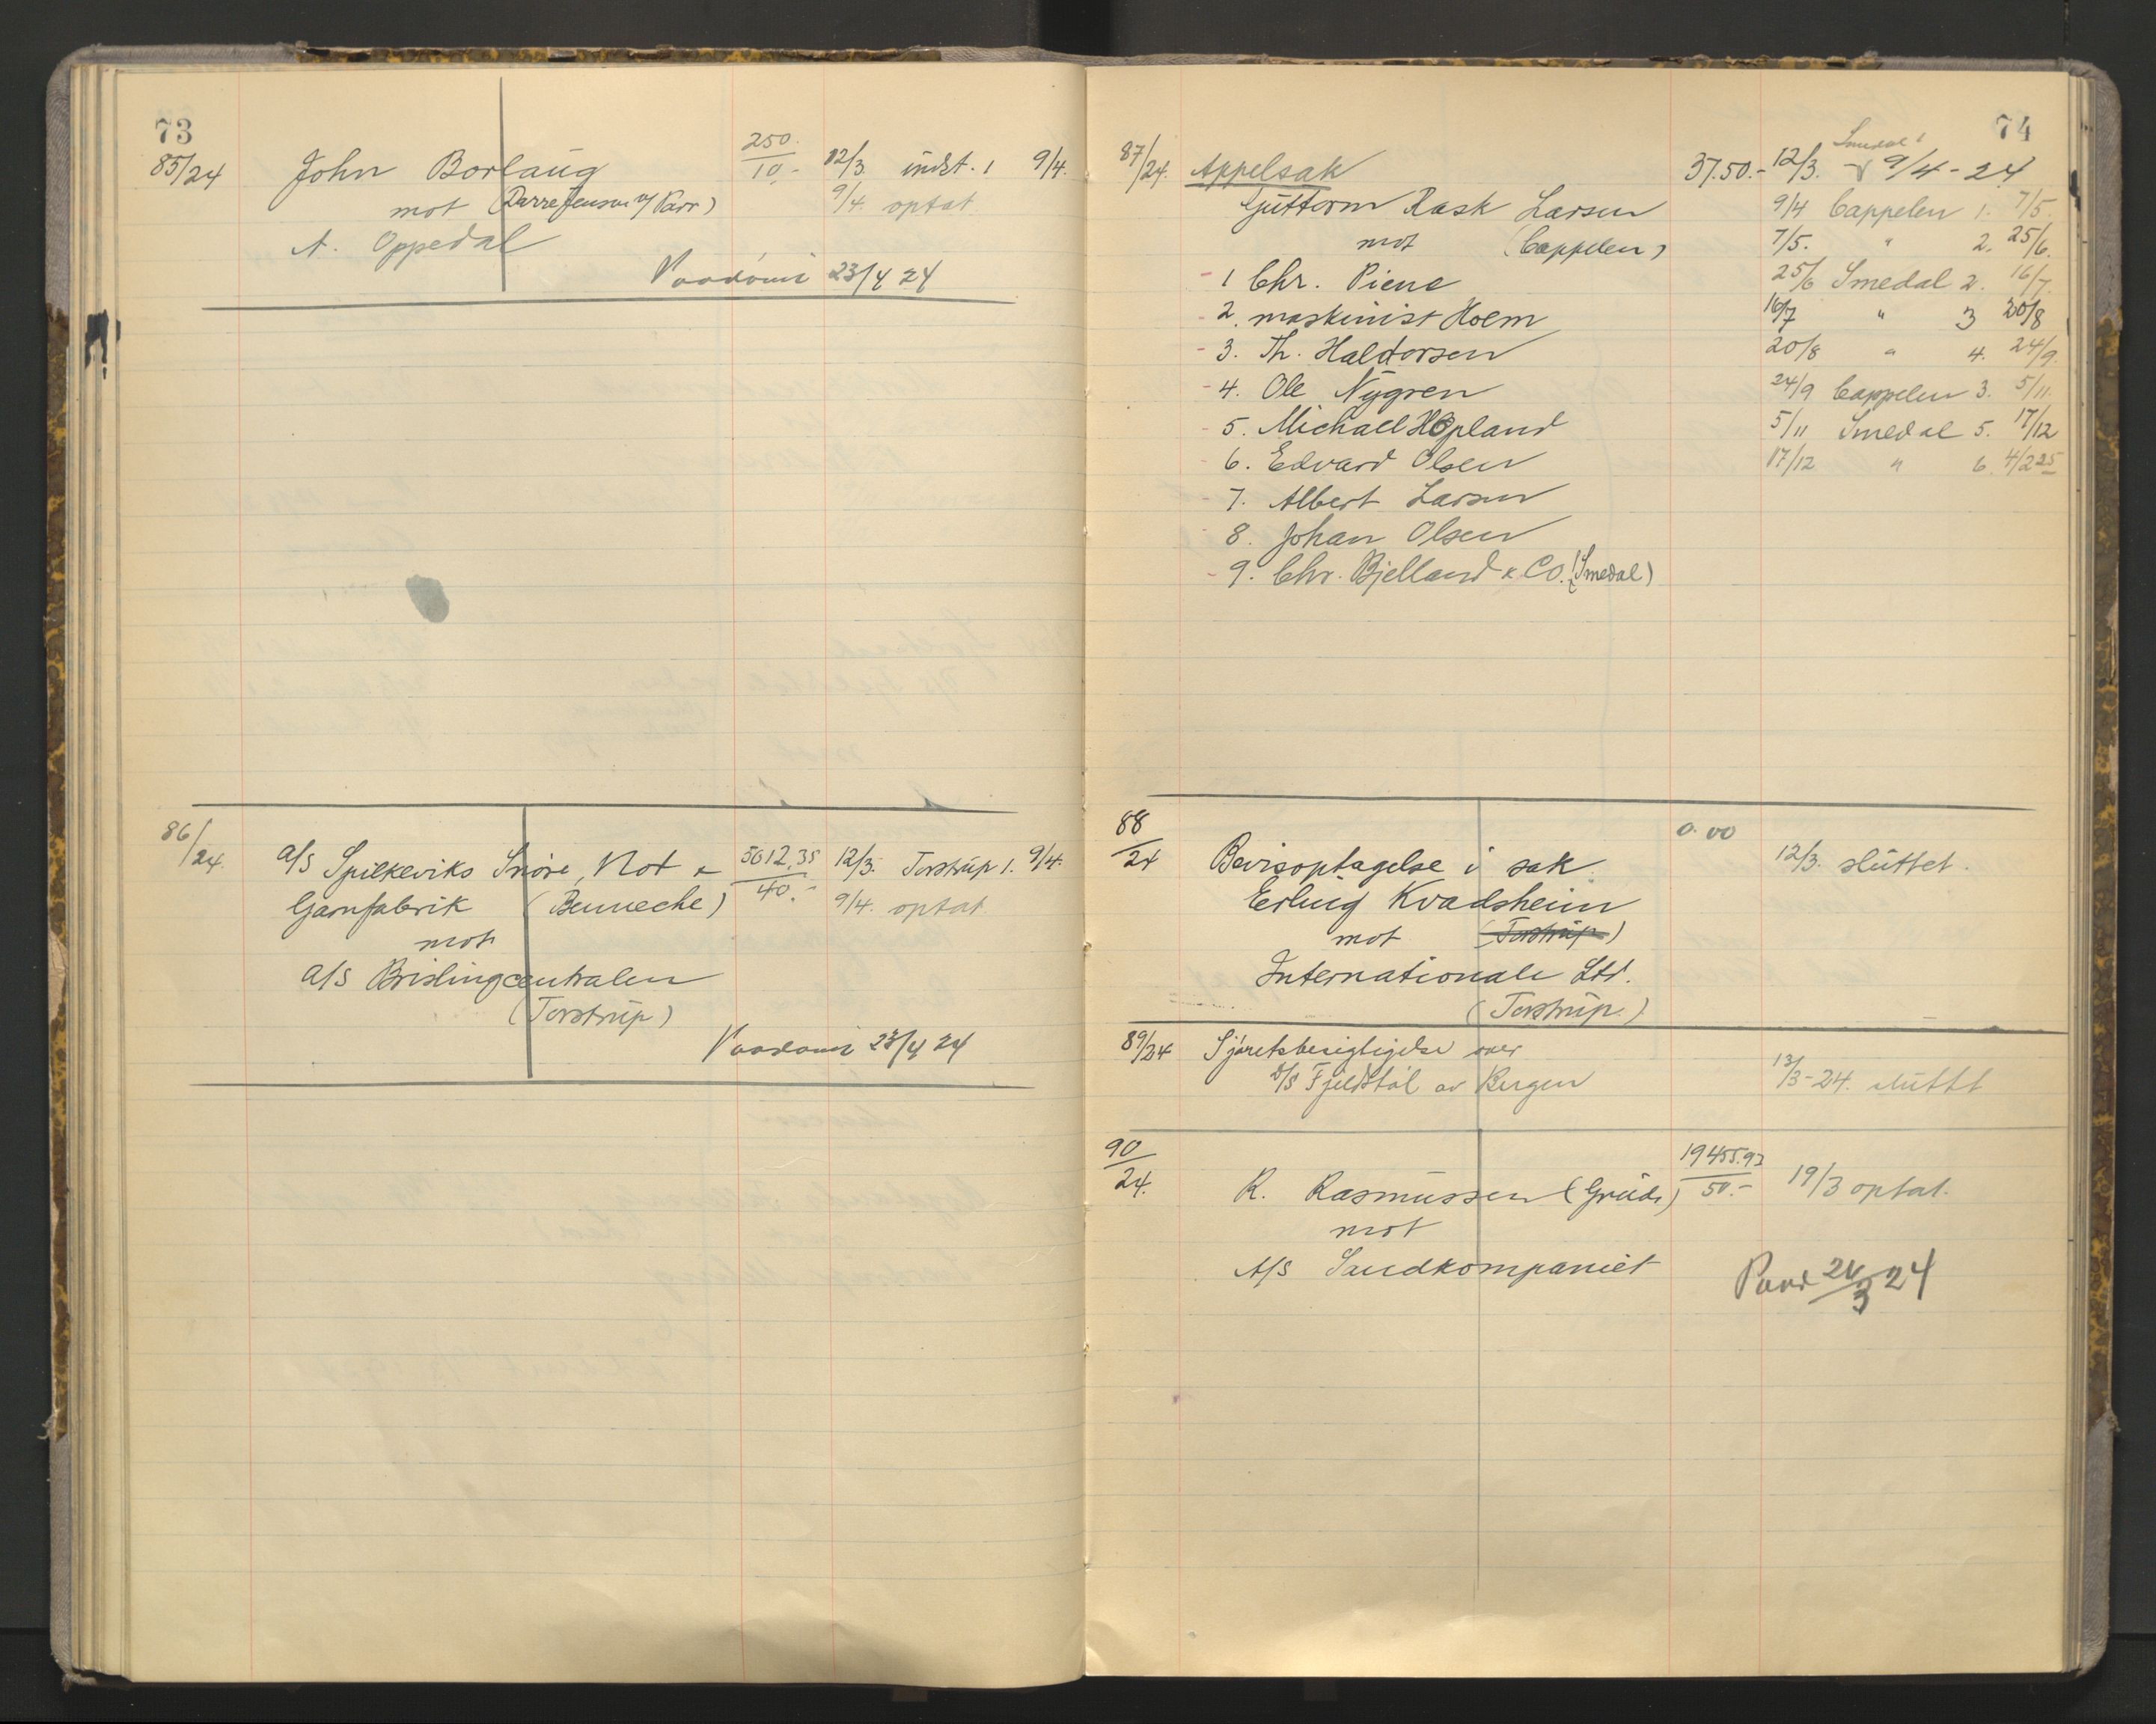 73
85/24 John Borlaug 250.- 12/3. indst. 1 9/4.
mot 10.- 9/4. optat
A. Oppedal
23/4 24
86/24. A/S Spilkeviks Snøre, Not & 5612.35 12/3. Torstrup 1. 9/4.
Garnfabrik (Benneche) 40.- 9/4. optat.
mot
A/S Brislingcentralen
(Torstrup)
23/4 24
74
Smedal 1
87/24. Appelsak 37.50.- 12/3. 9/4-24
Guttorm Rask Larsen 9/4 Cappelen 1. 7/5.
mot (Cappelen) 7/5. " 2. 25/6.
- 1 Chr. Piene 25/6 Smedal 2. 16/7.
- 2. maskinist Holm 16/7 " 3 20/8
- 3. Th. Haldorsen 20/8 " 4. 24/9.
- 4. Ole Nygren 24/9 Cappelen 3. 5/11.
- 5. Michael Hopland 5/11 Smedal 5. 17/12
- 6. Edvard Olsen 17/12 " 6. 4/2 25
- 7. Albert Larsen
- 8. Johan Olsen
- 9. Chr. Bjelland & Co. (Smedal)
88/24 Bevisoptagelse i sak 0.00 12/3. sluttet.
Erling Kvadsheim
mot (Torstrup)
Internationale Ltd.
(Torstrup.)
89/24 Sjøretsbesigtigelse over
D/S Fjeldstøl av Bergen 13/3-24. sluttet
90/24. R. Rasmussen 19455.93 19/3 optat.
mot 50.-
A/S Sandkompaniet
24